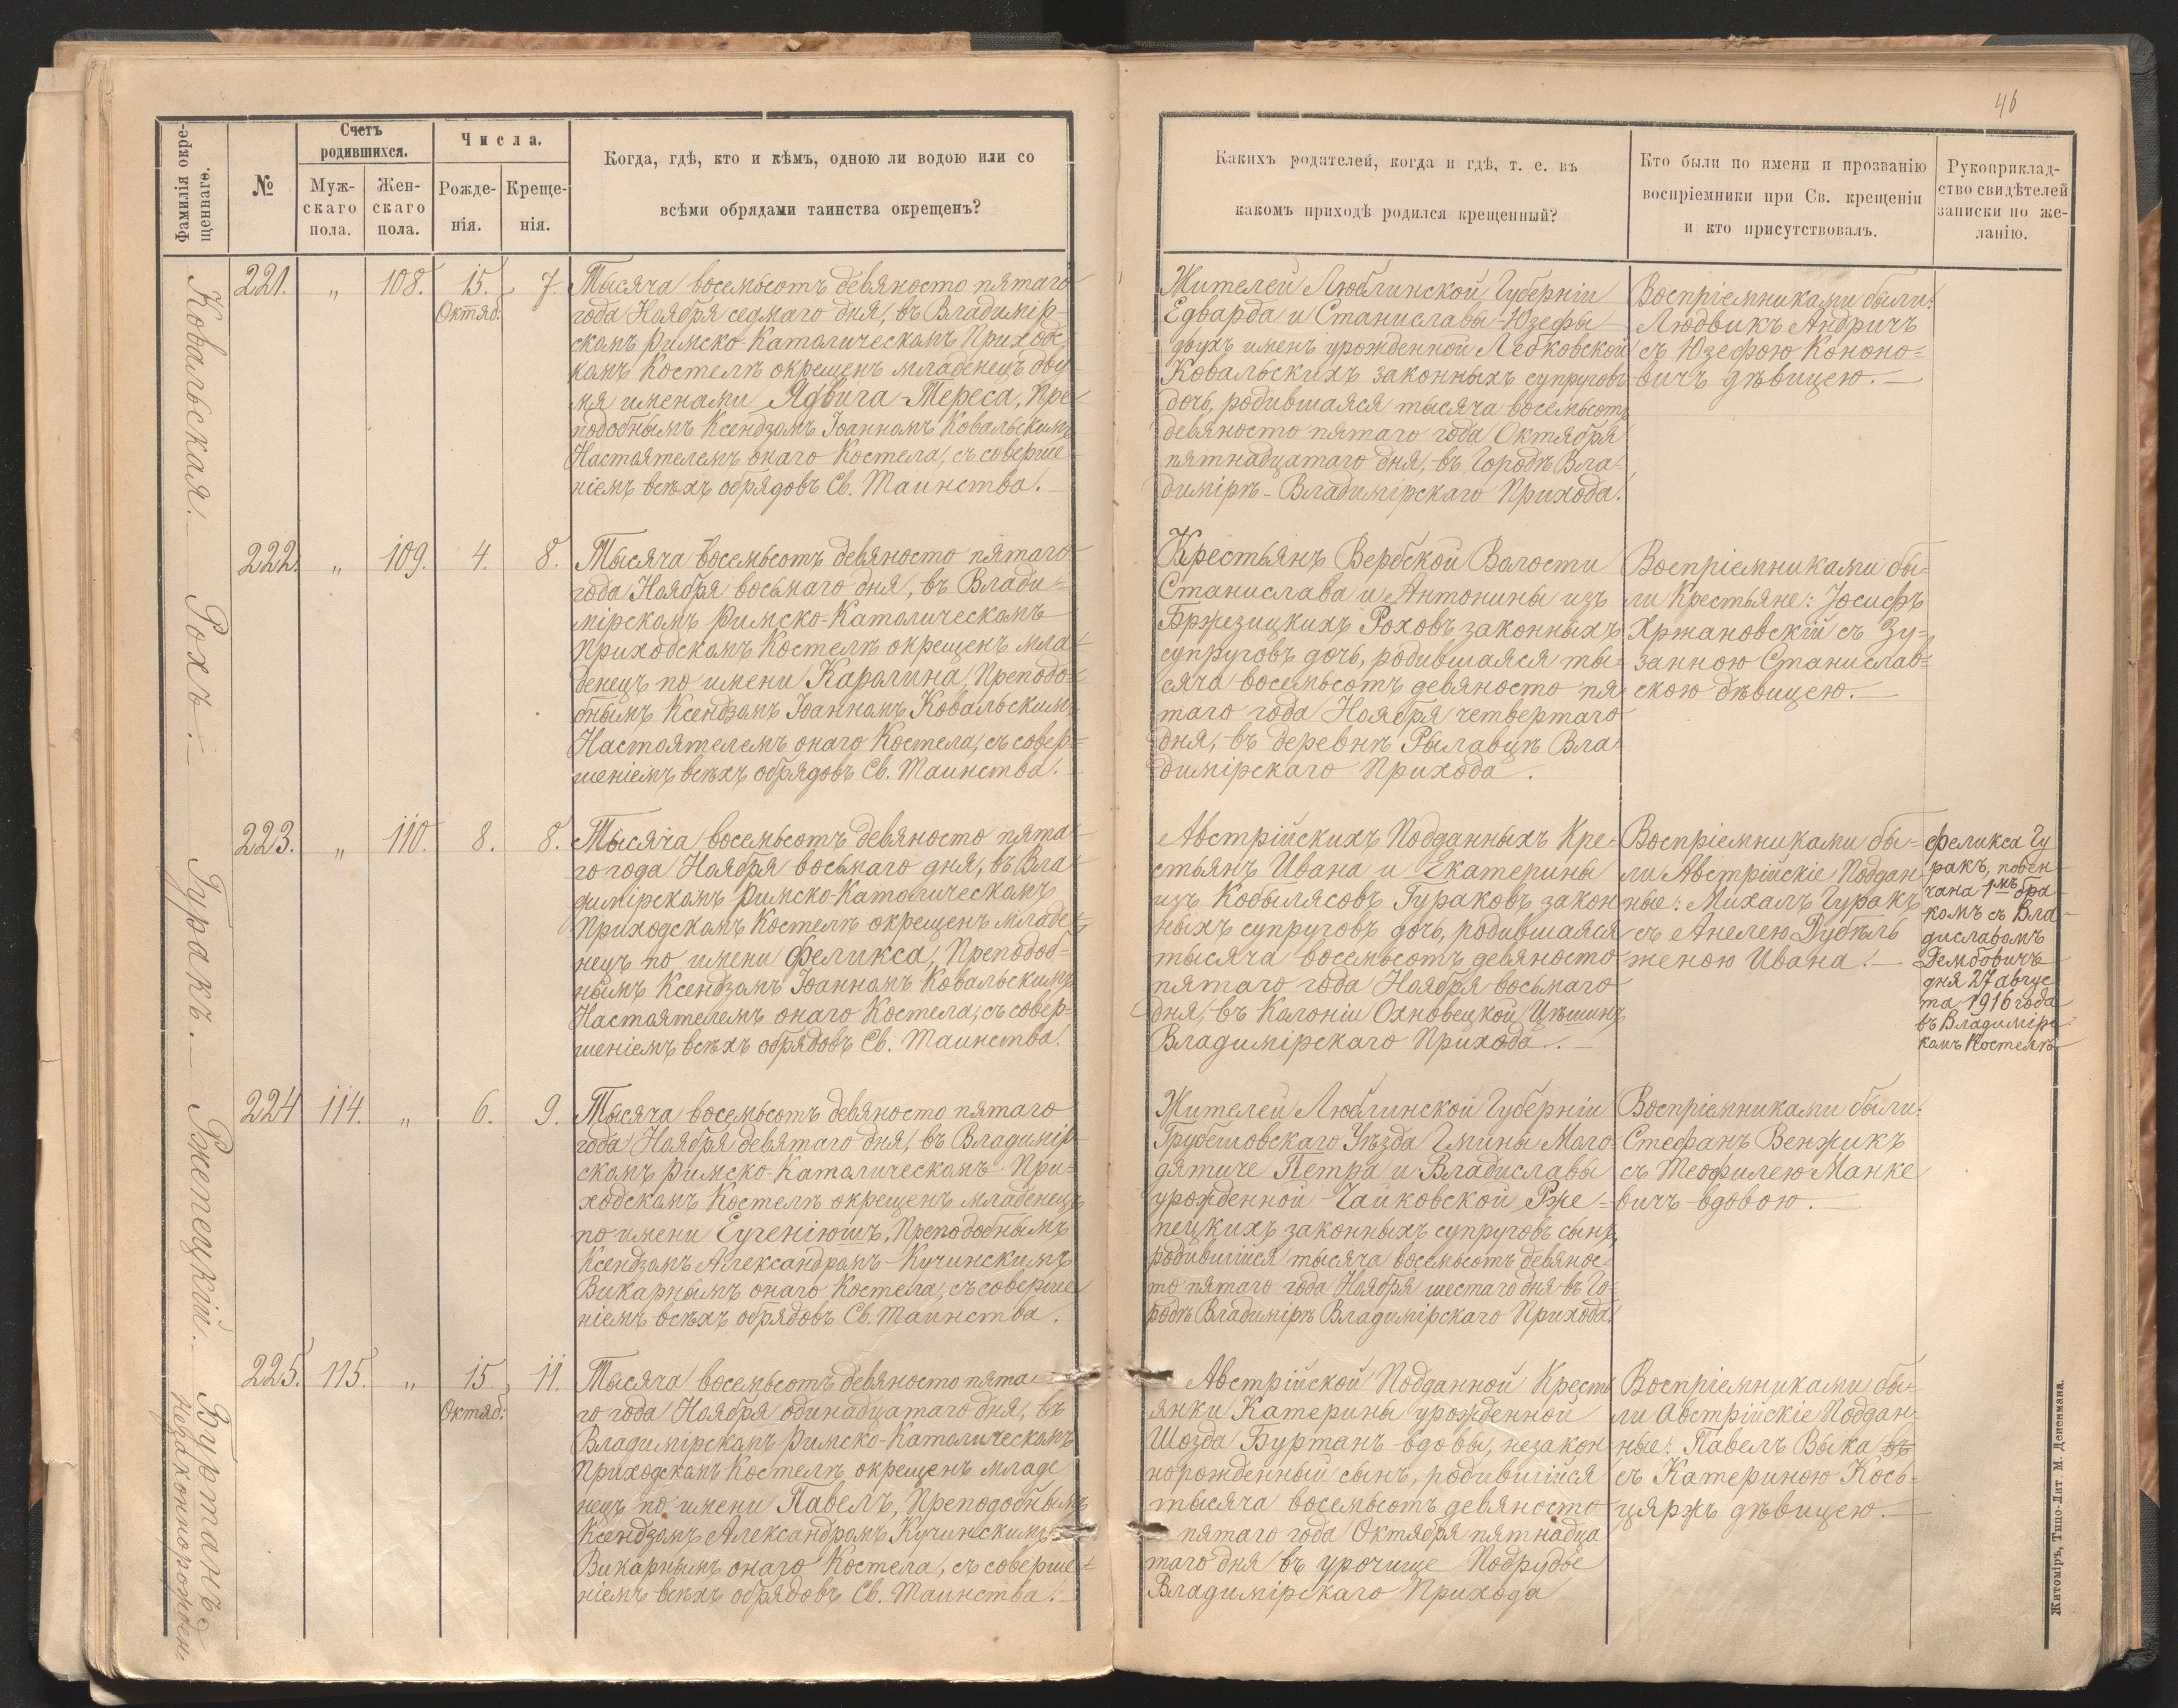 46
Фамилія окре-
щеннаго.
№
Счетъ
родившихся.
Муж-
скаго
пола.
Жен-
скаго
пола.
Числа.
Рожде-
нія.
Креще-
нія.
Когда, гдѣ, кто и кѣмъ, одною ли водою или со
всѣми обрядами таинства окрещенъ?
Какихъ родителей, когда и гдѣ, т. е. въ
какомъ приходѣ родился крещенный?
Кто были по имени и прозванію
воспріемники при Св. крещеніи
и кто присутствовалъ.
Рукоприклад-
ство свидѣтелей
записки по же-
ланію.
Ковальская.
221. „ 108. 15. 7.
Октяб.
Тысяча восемьсотъ девяносто пятаго
года Ноября седмаго дня, въ Владимір-
скомъ Римско-Католическомъ Приход-
скомъ Костелѣ окрещенъ младенецъ дву-
мя именами Ядвига-Тереса, Пре-
подобнымъ Ксендзомъ Іоанномъ Ковальскимъ
Настоятелемъ онаго Костела, съ соверше-
ніемъ всѣхъ обрядовъ Св. Таинства.
Жителей Люблинской Губерніи
Едварда и Станиславы-Юзефы
двухъ именъ урожденной Лебковской
Ковальскихъ законныхъ супруговъ
дочь, родившаяся тысяча восемьсотъ
девяносто пятаго года Октября
пятнадцатаго дня, въ Городѣ Вла-
димірѣ - Владимірскаго Прихода.
Воспріемниками были:
Людвикъ Андричъ
съ Юзефою Кононо-
вичъ дѣвицею.
Рохъ.
222. „ 109. 4. 8.
Тысяча восемьсотъ девяносто пятаго
года Ноября восьмаго дня, въ Влади-
мірскомъ Римско-Католическомъ
Приходскомъ Костелѣ окрещенъ мла-
денецъ по имени Каролина, Преподо-
бнымъ Ксендзомъ Іоанномъ Ковальскимъ
Настоятелемъ онаго Костела, съ совер-
шеніемъ всѣхъ обрядовъ Св. Таинства.
Крестьянъ Вербской Волости
Станислава и Антонины изъ
Бржезицкихъ Роховъ законныхъ
супруговъ дочь, родившаяся ты-
сяча восемьсотъ девяносто пя-
таго года Ноября четвертаго
дня, въ деревнѣ Рылавцѣ Вла-
димірскаго Прихода.
Воспріемниками бы-
ли Крестьяне: Іосифъ
Хржановскій съ Зу-
занною Станислав-
скою дѣвицею.
Гуракъ.
223. „ 110. 8. 8.
Тысяча восемьсотъ девяносто пята-
го года Ноября восьмаго дня, въ Вла-
димірскомъ Римско-Католическомъ
Приходскомъ Костелѣ окрещенъ младе-
нецъ по имени Феликса, Преподоб-
нымъ Ксендзомъ Іоанномъ Ковальскимъ
Настоятелемъ онаго Костела, съ совер-
шеніемъ всѣхъ обрядовъ Св. Таинства.
Австрійскихъ Подданныхъ Кре-
стьянъ Ивана и Екатерины
изъ Кобылясовъ Гураковъ закон-
ныхъ супруговъ дочь, родившаяся
тысяча восемьсотъ девяносто
пятаго года Ноября восьмаго
дня, въ Колоніи Охновецкой
Владимірскаго Прихода.
Воспріемниками бы-
ли Австрійскіе Поддан-
ные: Михалъ Гуракъ
съ Анелею Дубѣль
женою Ивана.
Феликса Гу
ракъ, повѣн-
чана 1мъ бра-
комъ съ Вла-
диславомъ
Дембовичъ
дня 27 авгус-
та 1916 года
въ Владимірс-
комъ Костелѣ
Ржепецкій.
224 114. „ 6. 9.
Тысяча восемьсотъ девяносто пятаго
года Ноября девятаго дня, въ Владимір-
скомъ Римско-Католическомъ При-
ходскомъ Костелѣ окрещенъ младенецъ
по имени Еугеніюшъ, Преподобнымъ
Ксендзомъ Александромъ Кучинскимъ
Викарнымъ онаго Костела, съ соверше-
ніемъ всѣхъ обрядовъ Св. Таинства.
Жителей Люблинской Губерніи
Грубешовскаго Уѣзда Гмины Моло-
дятиче Петра и Владиславы
урожденной Чайковской Рже-
пецкихъ законныхъ супруговъ сынъ,
родившійся тысяча восемьсотъ девянос-
то пятаго года Ноября шестаго дня въ Го-
родѣ Владимірѣ Владимірскаго Прихода.
Воспріемниками были:
Стефанъ Венжикъ
съ Теофилею Манке
вичъ вдовою.
Буртанъ
незаконнорожден.
225. 115. „ 15. 11.
Октяб.
Тысяча восемьсотъ девяносто пята-
го года Ноября одинадцатаго дня, въ
Владимірскомъ Римско-Католическомъ
Приходскомъ Костелѣ окрещенъ младе
нецъ по имени Павелъ, Преподобнымъ
Ксендзомъ Александромъ Кучинскимъ
Викарнымъ онаго Костела, съ соверше-
ніемъ всѣхъ обрядовъ Св. Таинства.
Австрійской Подданной Кресть
янки Катерины урожденной
Шозда Буртанъ вдовы, незакон-
норожденный сынъ, родившійся
тысяча восемьсотъ девяносто
пятаго года Октября пятнадца
таго дня въ урочище Подрудье
Владимірскаго Прихода
Воспріемниками бы-
ли Австрійскіе Поддан-
ные: Павелъ Выка въ
съ Катериною Кось-
цяржъ дѣвицею.
Житоміръ, Типо-Лит. М. Дененмана.